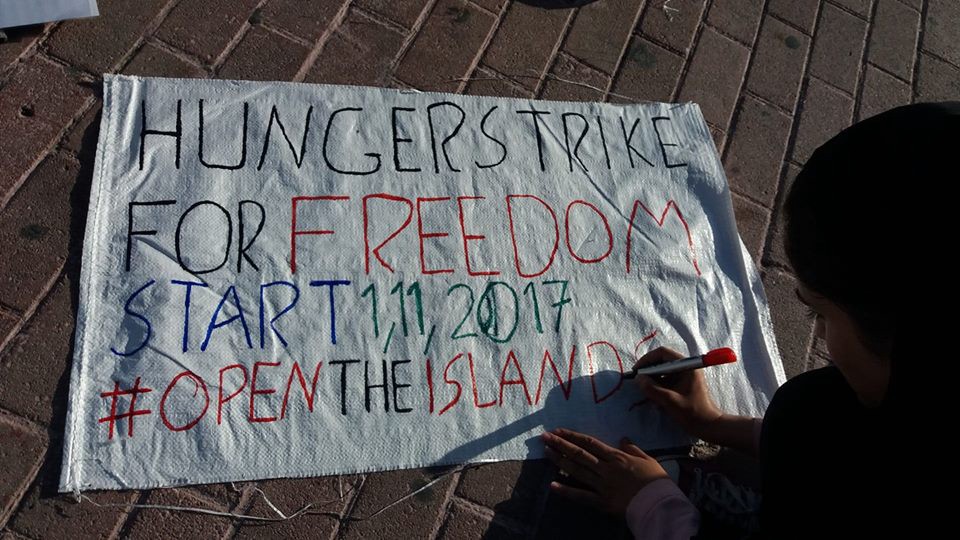 HUNGERSTRIKE
FOR FREEDOM
START 1,11,2017
#OPENTHEISLANDS